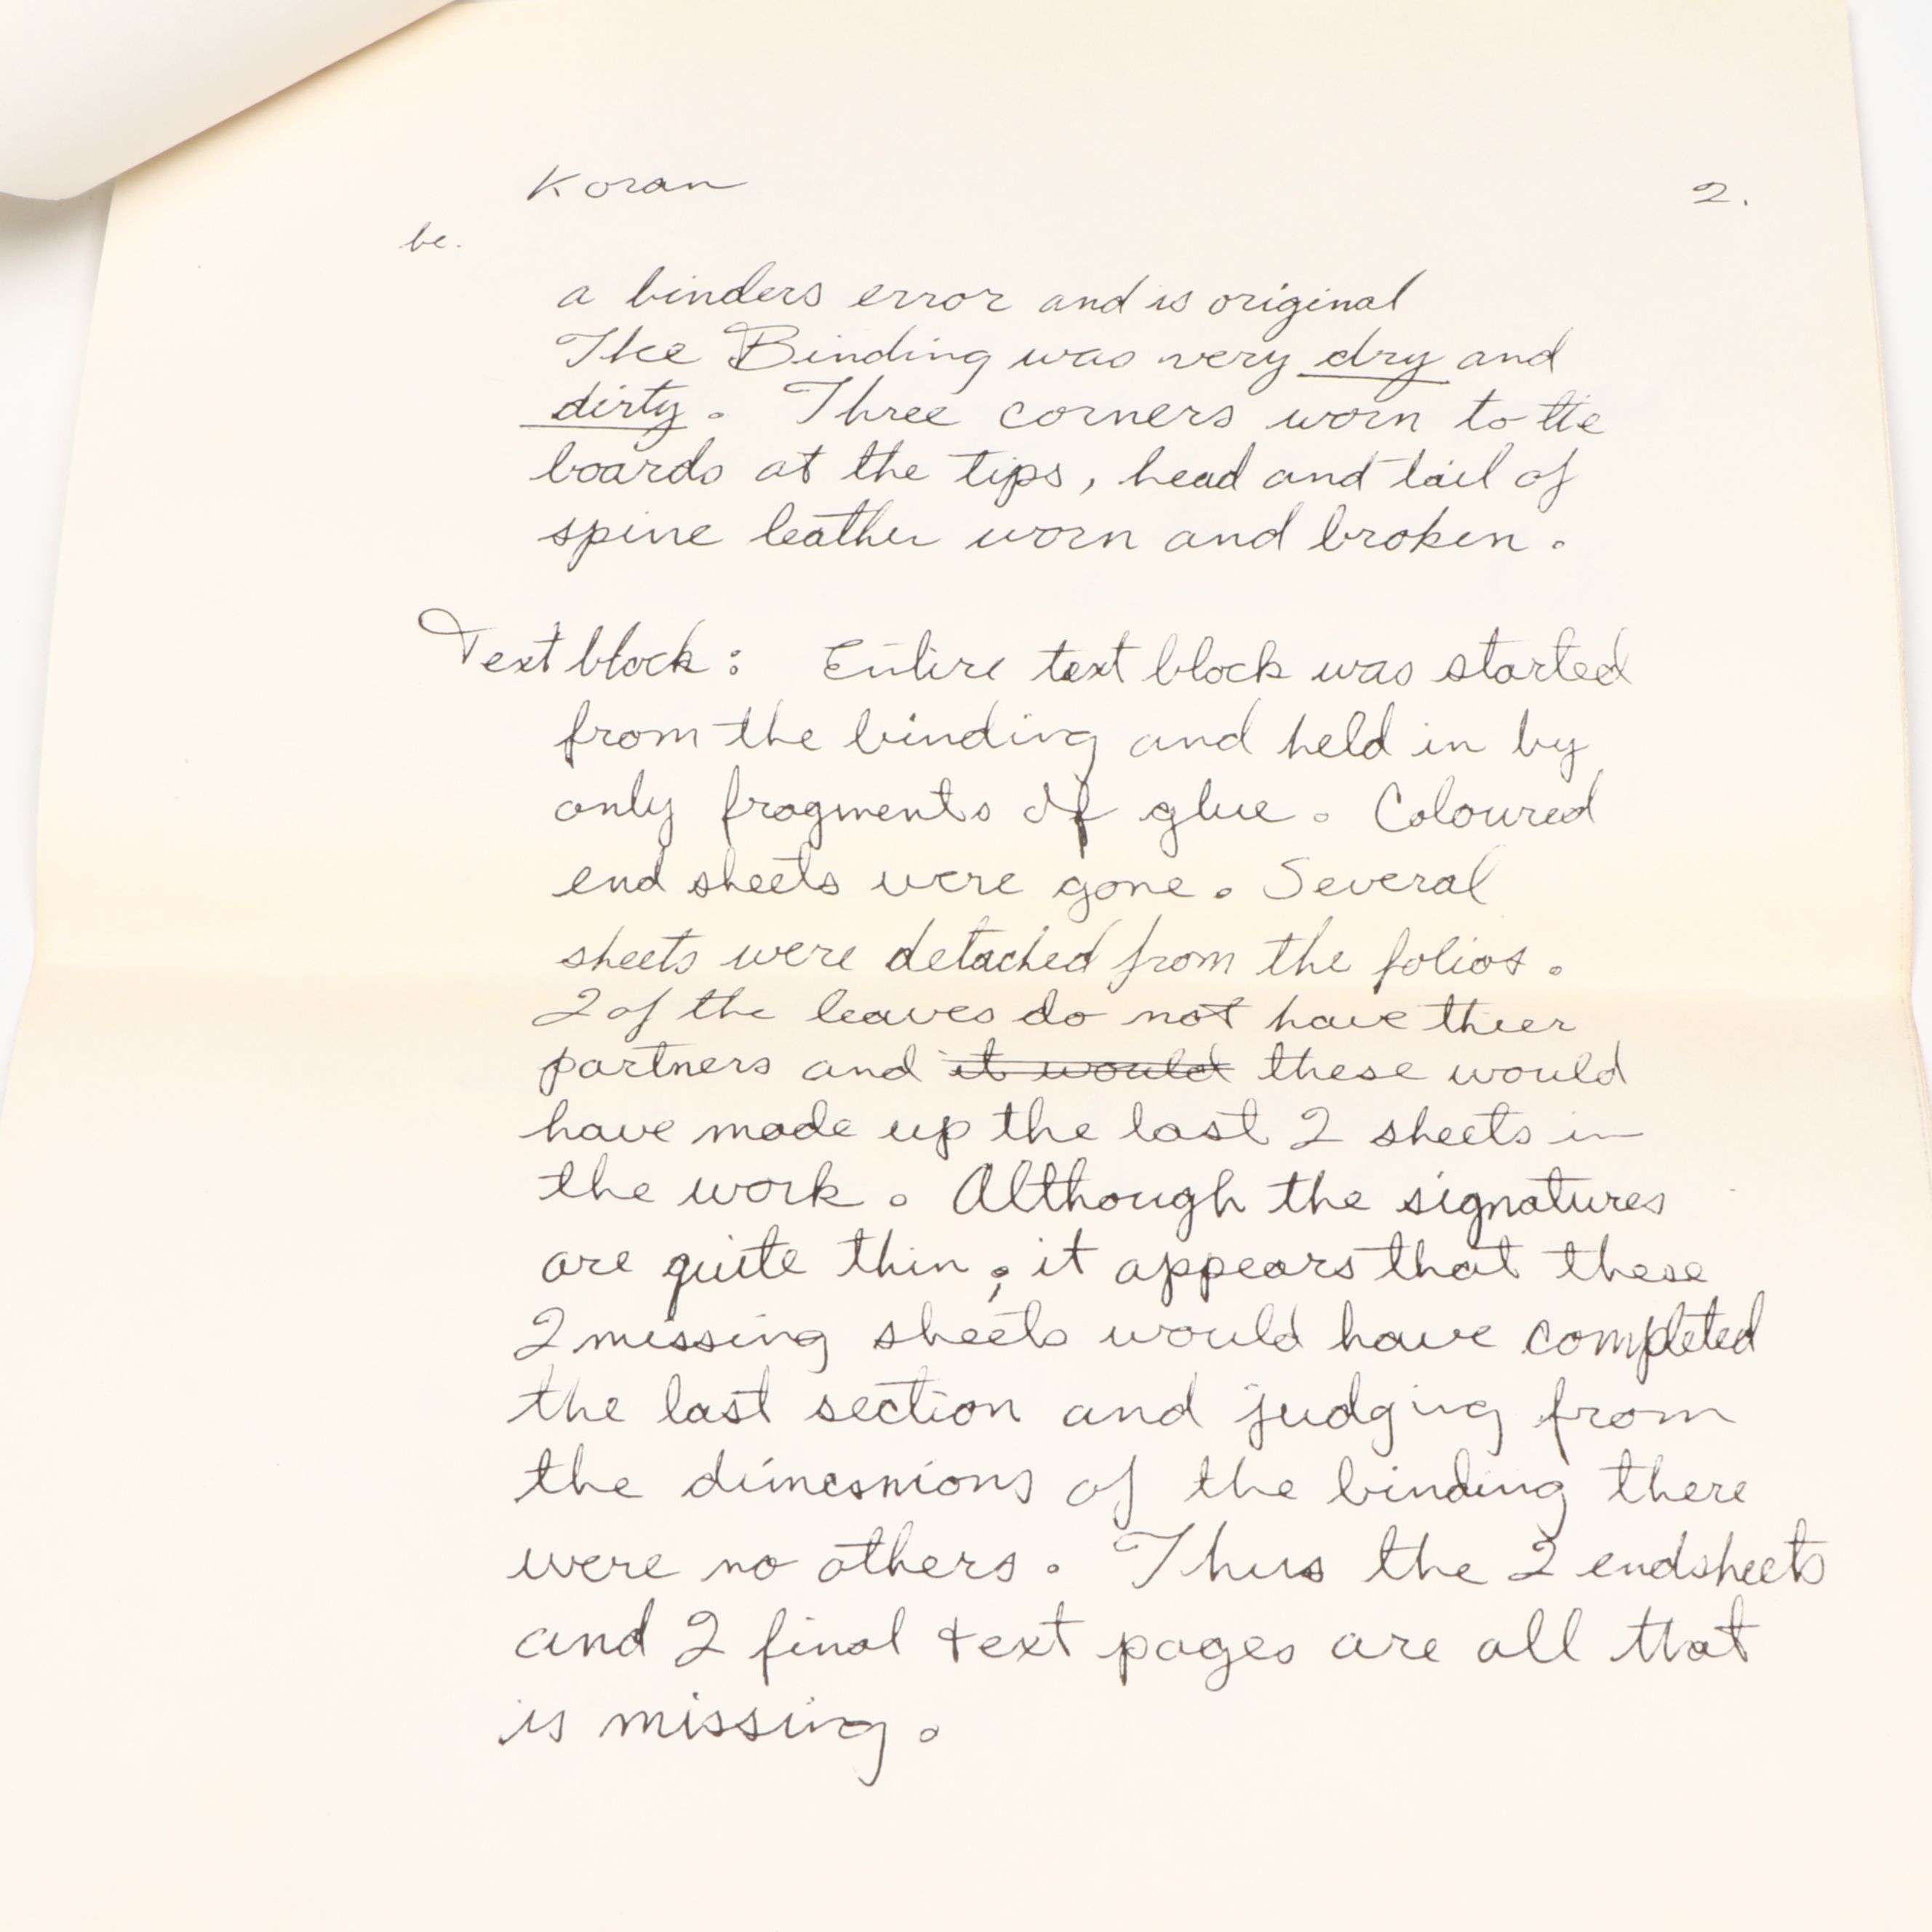 Koran 2.
be.
a binders error and is original
The Binding was very dry and
dirty. Three corners worn to the
boards at the tips, head and tail of
spine leather worn and broken.
Text block: Entire text block was started
from the binding and held in by
only fragments of glue. Coloured
end sheets were gone. Several
sheets were detached from the folios.
2 of the leaves do not have thier
partners and it would these would
have made up the last 2 sheets in
the work. Although the signatures
are quite thin; it appears that these
2 missing sheets would have completed
the last section and judging from
the dimesnions of the binding there
were no others. Thus the 2 endsheets
and 2 final text pages are all that
is missing.